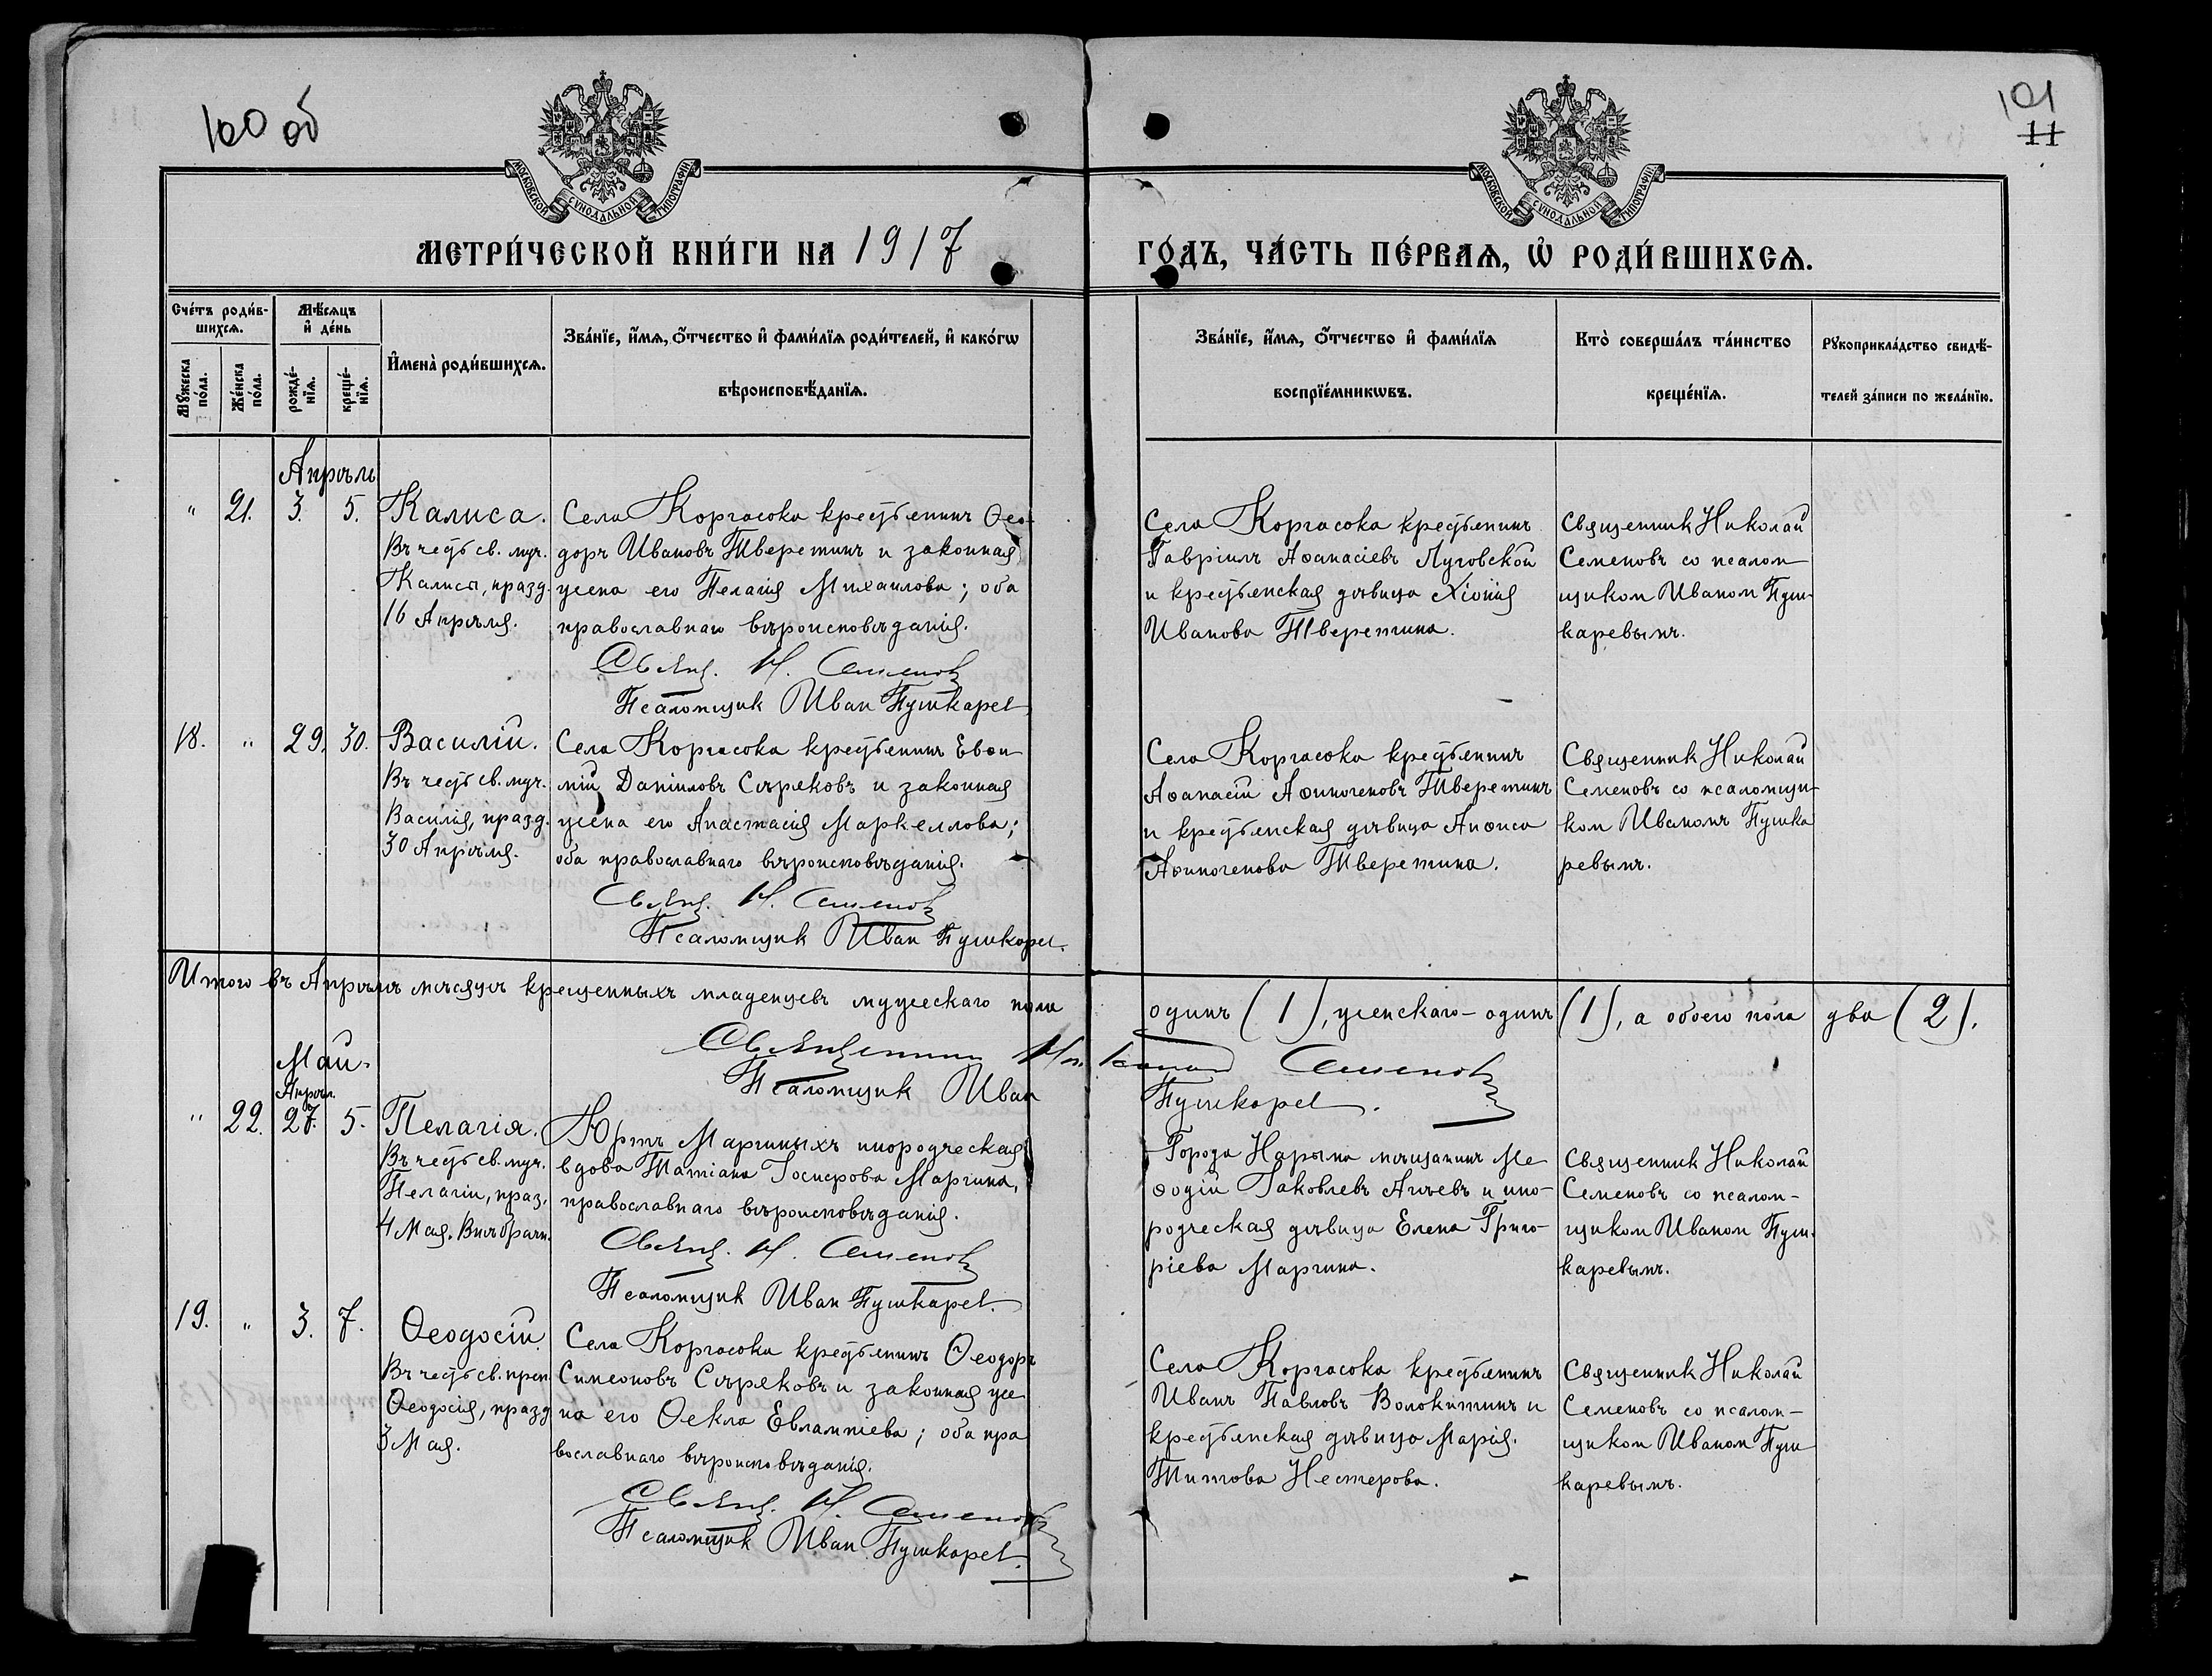 100 об
101
11
МОСКОВСКОЙ СѴНОДАЛЬНОЙ ТИПОГРАФІИ.
МОСКОВСКОЙ СѴНОДАЛЬНОЙ ТИПОГРАФІИ.
МЕТРИ́ЧЕСКОЙ КНИ́ГИ НА 1917
ГО́ДЪ, ЧА́СТЬ ПЕ́РВАѦ, Ѽ РОДИ́ВШИХСѦ.
Сче́тъ роди́в-
шихсѧ.
Мѣ́сѧцъ
и҆ де́нь
Мꙋ́жеска
по́ла.
Же́нска
по́ла.
рожде́-
нїѧ.
креще́-
нїѧ.
И҆мена̀ роди́вшихсѧ.
Зва́нїе, и҆́мѧ, ѻ҆́тчество и҆ фами́лїѧ роди́телей, и҆ како́гѡ
вѣроисповѣ́данїѧ.
Зва́нїе, и҆́мѧ, ѻ҆́тчество и҆ фами́лїѧ
воспрїе́мникѡвъ.
Кто̀ соверша́лъ та́инство
креще́нїѧ.
Рꙋкоприкла́дство свидѣ́-
телей за́писи по жела́нїю.
Апрѣль
" 21. 3. 5. Калиса.
Въ честь св. муч.
Калисы, празд.
16 Апрѣля.
Села Коргасока крестьянинъ Ѳео-
доръ Ивановъ Тверетинъ и законная
жена его Пелагія Михаилова; оба
православнаго вѣроисповѣданія.
Свящ. Н. Семенов
Псаломщик Иван Пушкарев
Села Коргасока крестьянинъ
Гавріилъ Аѳанасіевъ Луговской
и крестьянская дѣвица Хіонія
Иванова Тверетина.
Священник Николай
Семеновъ со псалом-
щиком Иваном Пуш-
каревымъ.
18. " 29. 30. Василій.
Въ честь св. муч.
Василія, празд.
30 Апрѣля.
Села Коргасока крестьянинъ Евѳи
мій Даніиловъ Сѣряковъ и законная
жена его Анастасія Маркеллова;
оба православнаго вѣроисповѣданія.
Свящ. Н. Семенов
Псаломщик Иван Пушкарев.
Села Коргасока крестьянинъ
Аѳанасій Аѳиногеновъ Тверетинъ
и крестьянская дѣвица Анѳиса
Аѳиногенова Тверетина.
Священник Николай
Семеновъ со псаломщи-
ком Иваномъ Пушка
ревымъ.
Итого въ Апрѣлѣ мѣсяцѣ крещенныхъ младенцевъ мужескаго пола одинъ (1), женскаго - одинъ (1), а обоего пола два (2).
Священник Николай Семенов
Псаломщик Иван Пушкарев.
Май.
Апрѣл.
" 22. 27. 5. Пелагія.
Въ честь св. муч.
Пелагіи, праз.
4 Мая. Внѣбрачн.
Юртъ Маргиныхъ инородческая
вдова Татіана Іосифова Маргина,
православнаго вѣроисповѣданія.
Свящ. Н. Семенов
Псаломщик Иван Пушкарев.
Города Нарыма мѣщанинъ Ме
ѳодій Іаковлевъ Ачѣевъ и ино-
родческая дѣвица Елена Григо-
ріева Маргина.
Священник Николай
Семеновъ со псалом-
щиком Иваном Пуш-
каревымъ.
19. " 3. 7. Ѳеодосій.
Въ честь св. преп.
Ѳеодосія, празд
3 Мая.
Села Коргасока крестьянинъ Ѳеодоръ
Симеоновъ Сѣряковъ и законная же
на его Ѳекла Евлампіева; оба пра
вославнаго вѣроисповѣданія.
Свящ. Н. Семенов
Псаломщик Иван Пушкарев.
Села Коргасока крестьянинъ
Иванъ Павловъ Волокитинъ и
крестьянская дѣвица Марія
Титова Нестерова.
Священник Николай
Семеновъ со псалом-
щиком Иваном Пуш
каревымъ.